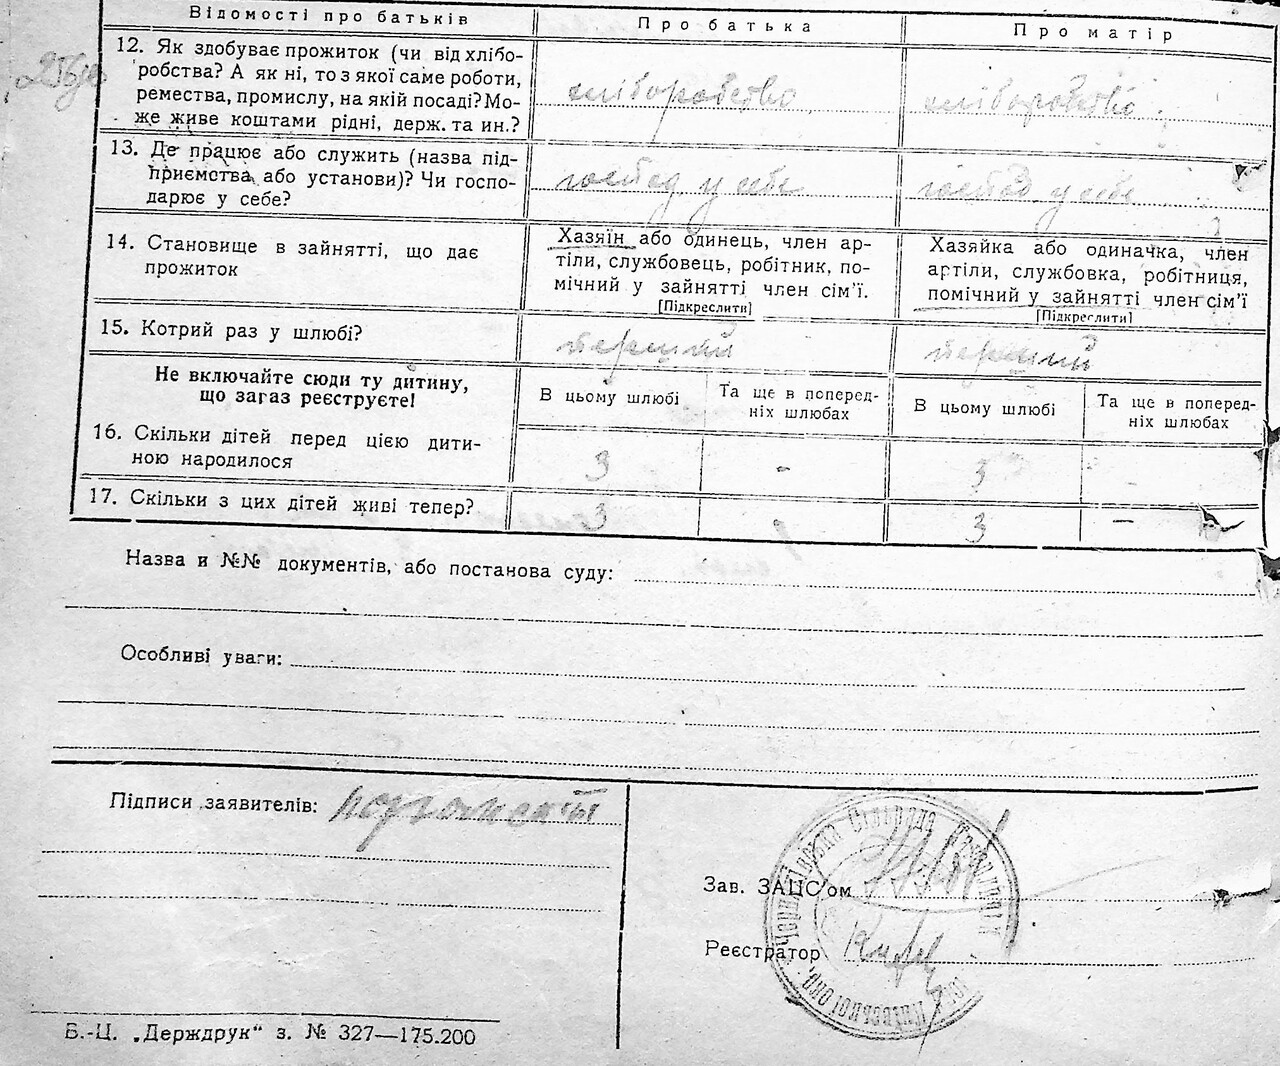 Відомості про батьків Про батька Про матір
12. Як здобуває прожиток (чи від хлібо-
робства? А як ні, то з якої саме роботи,
ремества, промислу, на якій посаді? Мо-
же живе коштами рідні, держ. та ин.?
хліборобство хліборобство
13. Де працює або служить (назва під-
приємства або установи)? Чи госпо-
дарює у себе?
господ у себе господ у себе
14. Становище в зайнятті, що дає
прожиток
Хазяїн або одинець, член ар-
тіли, службовець, робітник, по-
мічний у зайнятті член сім'ї.
[Підкреслити]
Хазяйка або одиначка, член
артіли, службовка, робітниця,
помічний у зайнятті член сім'ї
[Підкреслити]
15. Котрий раз у шлюбі? перший перший
Не включайте сюди ту дитину,
що загаз реєструєте!
В цьому шлюбі
Та ще в поперед-
ніх шлюбах
В цьому шлюбі
Та ще в поперед-
ніх шлюбах
16. Скільки дітей перед цією дити-
ною народилося
3 - 3 -
17. Скільки з цих дітей живі тепер? 3 3 -
Назва и №№ документів, або постанова суду:
Особливі уваги:
Підписи заявителів:
Зав. ЗАЦС'ом
Реєстратор
Київської окр.
Б.-Ц. „Держдрук" з. № 327—175.200